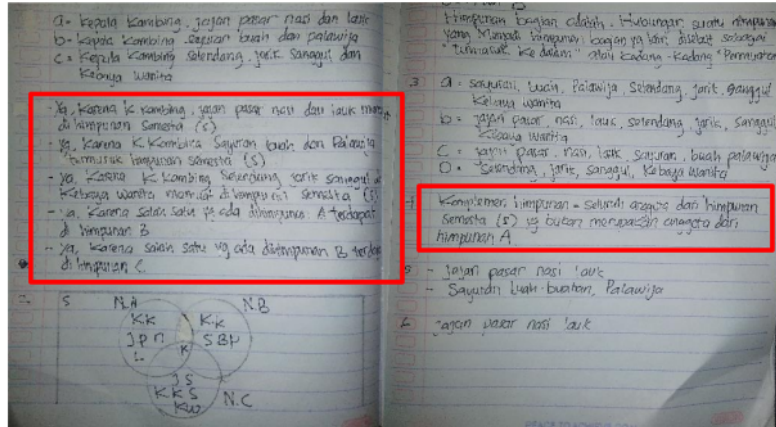 a = kepala kambing, jajan pasar nasi dan lauk
b = kepala kambing, sayuran buah dan palawija
c = kepala kambing selendang, jarik sanggul dan
kebaya wanita
- ya, karena k. kambing, jajan pasar nasi dan lauk
di himpunan semesta (S)
- ya, karena k. kambing sayuran buah dan palawija
termasuk himpunan semesta (S)
- ya, karena k. kambing selendang, jarik sanggul
kebaya wanita di himpunan semesta (S)
- ya, karena salah satu yg ada dihimpunan A terdapat
di himpunan B
- ya, karena salah satu yg ada dihimpunan B
di himpunan C
S
N.A
N.B
KK
KK
JPN
SBP
L
K
JS
KKS
KW
N.C
Himpunan bagian adalah. Hubungan suatu himpunan
yang menjadi himpunan bagian yg lain, disebut sebagai
"termasuk ke dalam" atau kadang-kadang
3 a = sayuran, buah, palawija, selendang, jarit, sanggul
kebaya wanita
b = jajan pasar, nasi, lauk, selendang, jarik, sanggul
kebaya wanita
C = jajan pasar, nasi, lauk, sayuran, buah palawija
D = selendang, jarik, sanggul, kebaya wanita
Komplemen himpunan = seluruh anggota dari himpunan
semesta (S) yg bukan merupakan anggota dari
himpunan A
- jajan pasar nasi lauk
- sayuran buah-buahan, palawija
jajan pasar nasi lauk